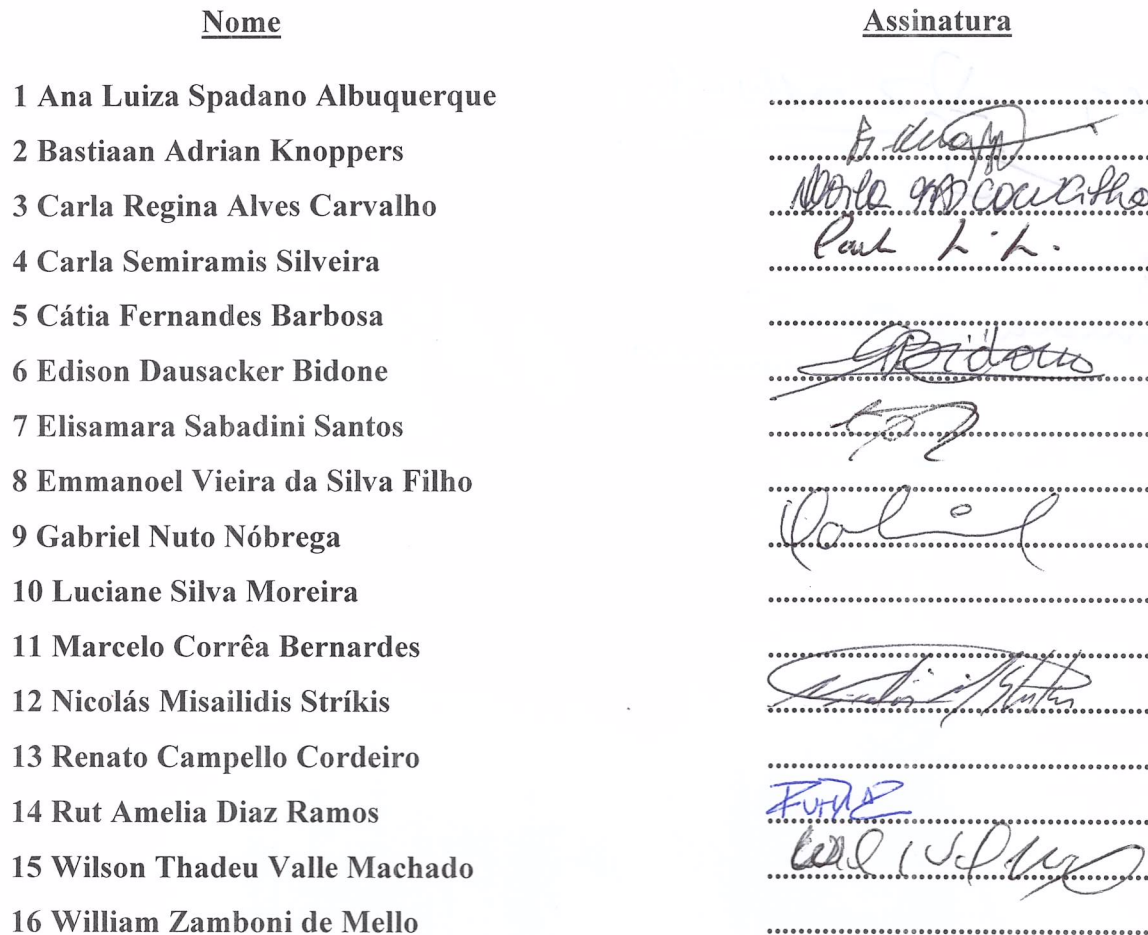 Nome Assinatura
1 Ana Luiza Spadano Albuquerque
2 Bastiaan Adrian Knoppers
3 Carla Regina Alves Carvalho
4 Carla Semiramis Silveira
5 Cátia Fernandes Barbosa
6 Edison Dausacker Bidone
7 Elisamara Sabadini Santos
8 Emmanoel Vieira da Silva Filho
9 Gabriel Nuto Nóbrega
10 Luciane Silva Moreira
11 Marcelo Corrêa Bernardes
12 Nicolás Misailidis Stríkis
13 Renato Campello Cordeiro
14 Rut Amelia Diaz Ramos
15 Wilson Thadeu Valle Machado
16 William Zamboni de Mello